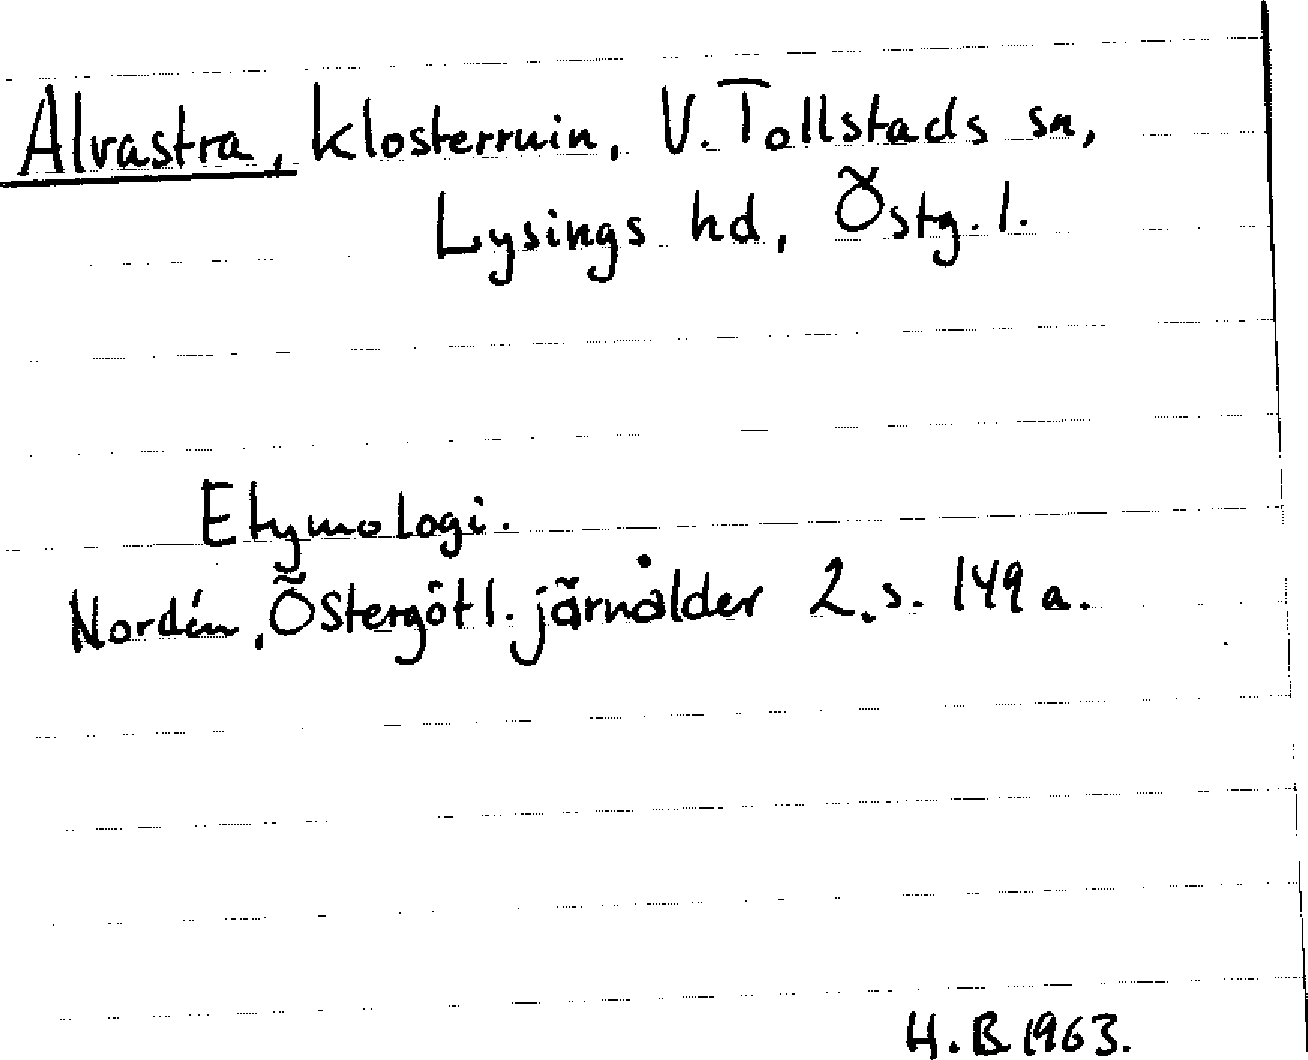 Alvastra, klosterruin, V. Tollstads sn,
Lysings hd, Östg. l.
Etymologi.
Nordén, Östergötl. järnålder 2. s. 149 a.
H. B. 1963.